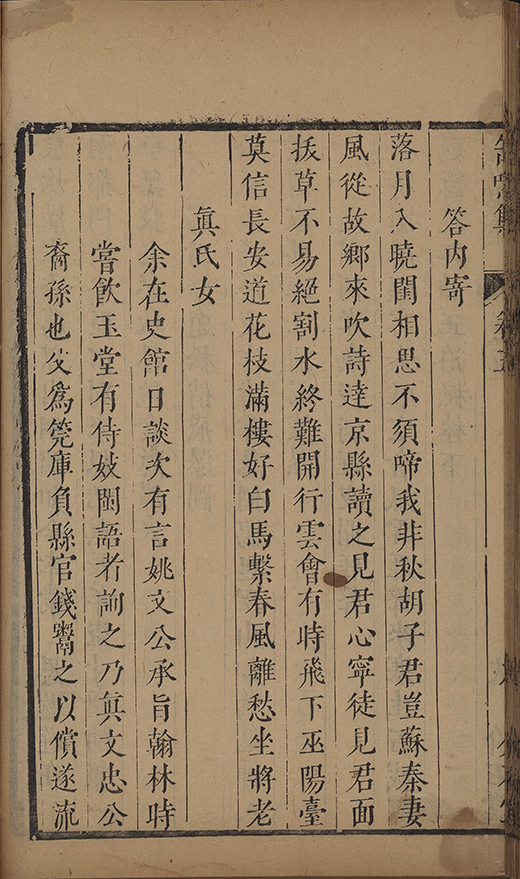 答內寄
落月入曉閨相思不須啼我非秋胡子君豈蘇秦妻
風從故鄉來吹詩達京縣讀之見君心寧徒見君面
拔草不易絕割水終難開行雲會有時飛下巫陽臺
莫信長安道花枝滿樓好白馬繫春風離愁坐將老
眞氏女
余在史館日談次有言姚文公承旨翰林時
嘗飲玉堂有侍妓閩語者詢之乃眞文忠公
裔孫也父爲筦庫負縣官錢鬻之以償遂流